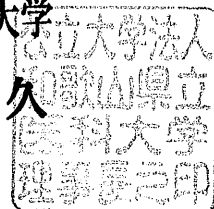 大学
久
公立大学法人
和歌山県立
医科大学
理事長之印